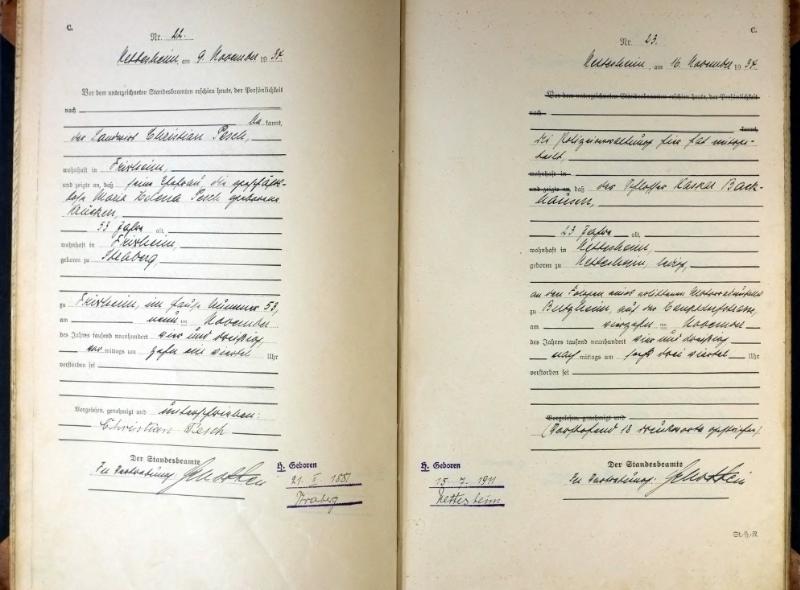 C.
Nr. 22.
Nettersheim, am 9. November 1934
Vor dem unterzeichneten Standesbeamten erschien heute, der Persönlichkeit
nach
kannt,
der Landwirt Christian Pesch,
wohnhaft in
und zeigte an, daß seine Ehefrau, die geschäfts-
lose Maria Helena Pesch geborene
53 Jahre alt,
wohnhaft in
geboren zu
zu im Hause Nummer 58,
am neun ten November
des Jahres tausend neunhundert vier und dreißig
vor mittags um zehn ein viertel Uhr
verstorben sei
Vorgelesen, genehmigt und unterschrieben:
Christian Pesch
Der Standesbeamte
In Vertretung:
H. Geboren
C.
Nr. 23.
Nettersheim, am 16. November 1934
Vor dem unterzeichneten Standesbeamten erschien heute, der Persönlichkeit
nach
kannt,
Die Polizeiverwaltung hier hat mitge-
teilt,
wohnhaft in
und zeigte an, daß der Schlosser Back-
hausen,
23 Jahre alt,
wohnhaft in Nettersheim,
geboren zu Nettersheim, ledig,
an den Folgen eines erlittenen
zu auf der
am vierzehn ten November
des Jahres tausend neunhundert vier und dreißig
nach mittags um drei viertel Uhr
verstorben sei
Vorgelesen, genehmigt und
(Vorstehend 13 Druckworte gestrichen)
Der Standesbeamte
In Vertretung:
H. Geboren
15. 7. 1911
Nettersheim